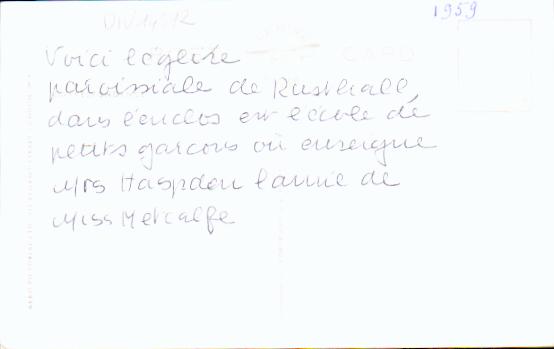 1959
Voici l'église
paroissiale de Rusthall,
dans l'enclos est l'école de
petits garçons où enseigne
Mrs Haspden l'amie de
Miss Metcalfe
CARD